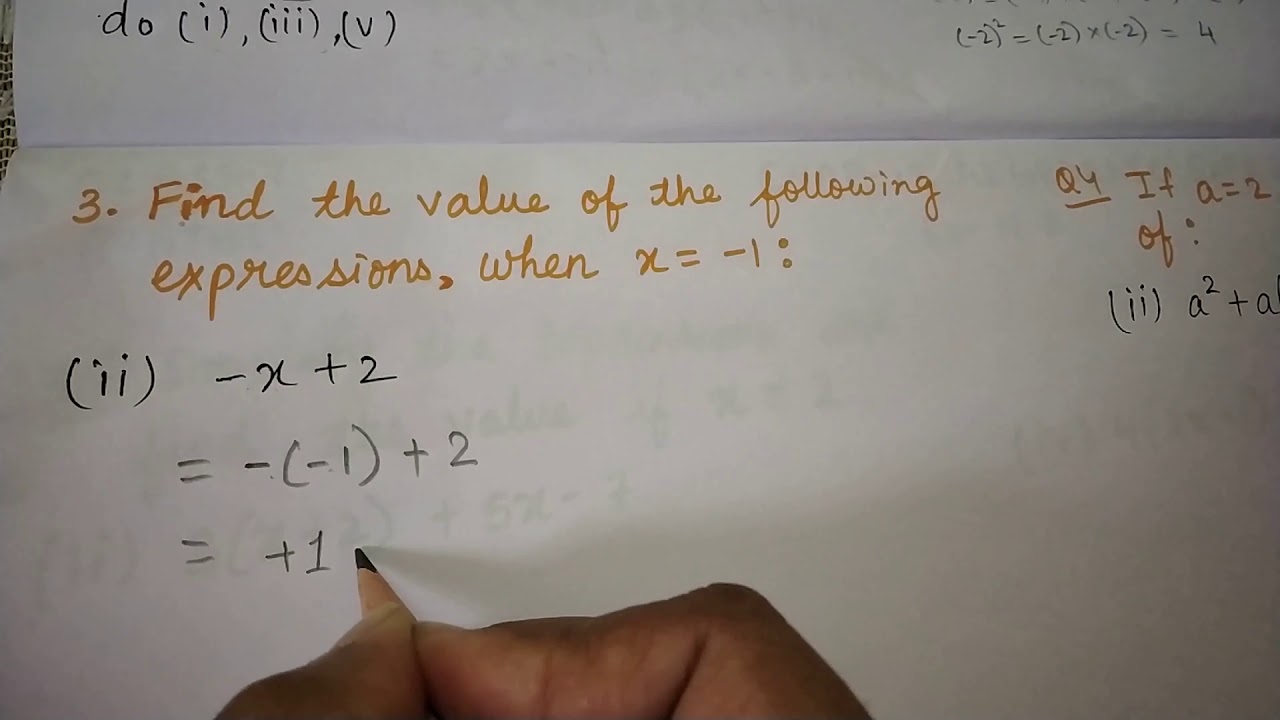 do (i), (iii), (v)
(-2)² = (-2) × (-2) = 4
3. Find the value of the following
expressions, when x = -1:
(ii) -x + 2
= -(-1) + 2
= +1
Q4 If a = 2
of:
(ii) a² + a